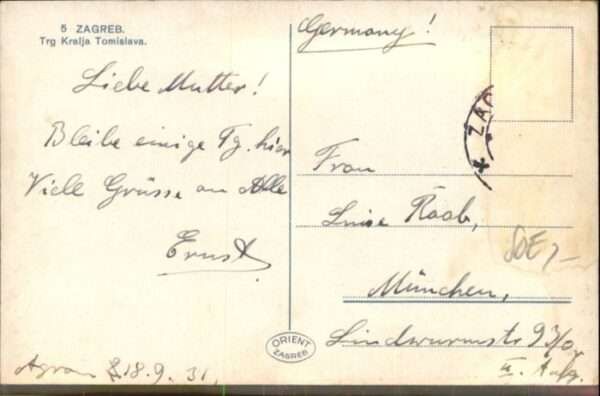 5 ZAGREB.
Trg Kralja Tomislava.
Liebe Mutter!
Bleibe einige Tg. hier
Viele Grüsse an Alle
Ernst
Agram 18.9.31.
Germany!
ZAG
Frau
Luise Raab,
München,
Lindwurmstr 93/0
II. Aufg.
ORIENT
ZAGREB